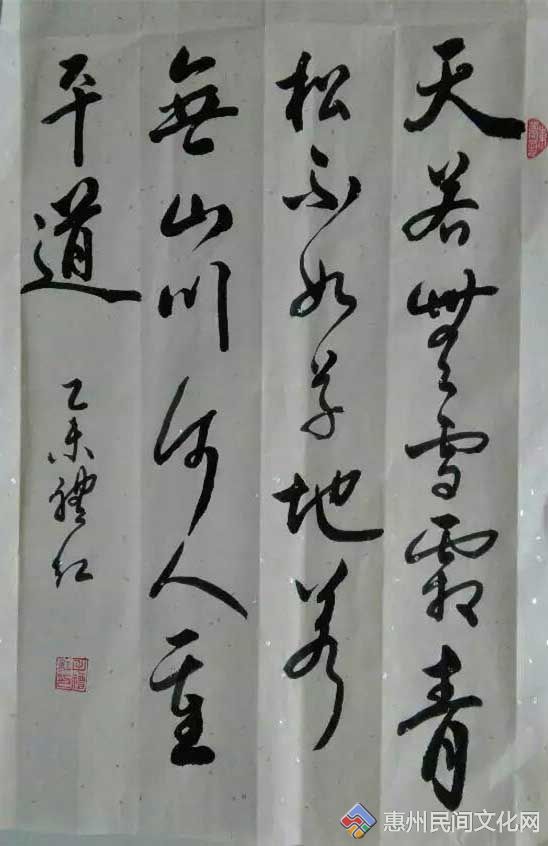 天若無雪霜青
松不如草地若
無山川何人重
平道
乙未礼红
惠州民间文化网